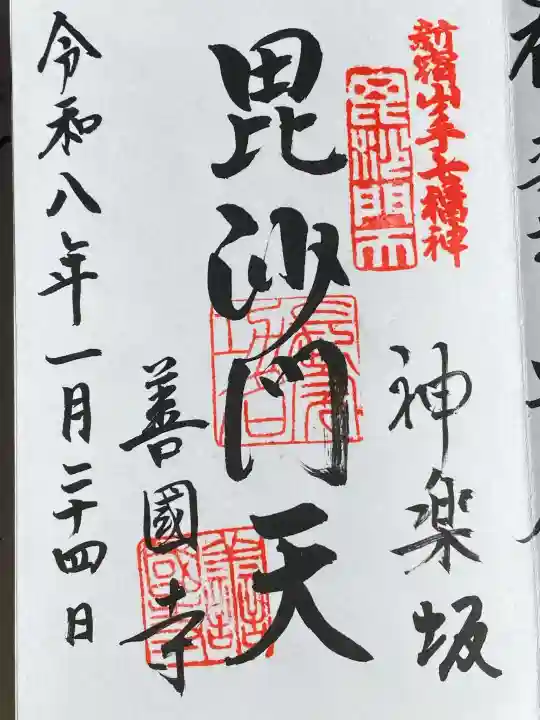 新宿山手七福神
毘沙門天
神楽坂
毘沙門天
善國寺
令和八年一月二十四日